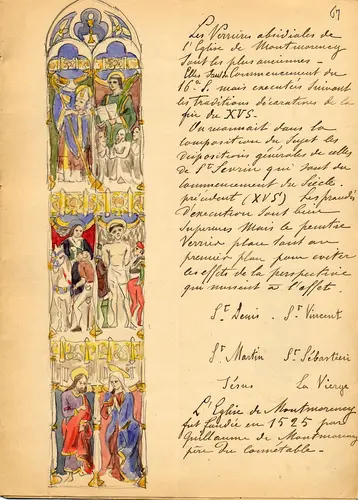 67
Les Verrières absidiales de
l'Eglise de Montmorency
sont les plus anciennes -
Elles sont du Commencement du
16e S. mais executées suivant
les traditions décoratives de la
fin du XVS -
On reconnait dans la
composition du sujet les
dispositions générales de celles
de St Severin qui sont du
commencement du Siècle
précédent (XVS) les procédés
d'execution sont bien
superieurs mais le peintre
Verrier place tout au
premier plan pour eviter
les effets de la perspective
qui nuisent à l'effet.
St Denis - St Vincent
St Martin St Sébastien
Jésus La Vierge
L'Eglise de Montmorency
fut fondée en 1525 par
Guillaume de Montmorency
père du connetable -